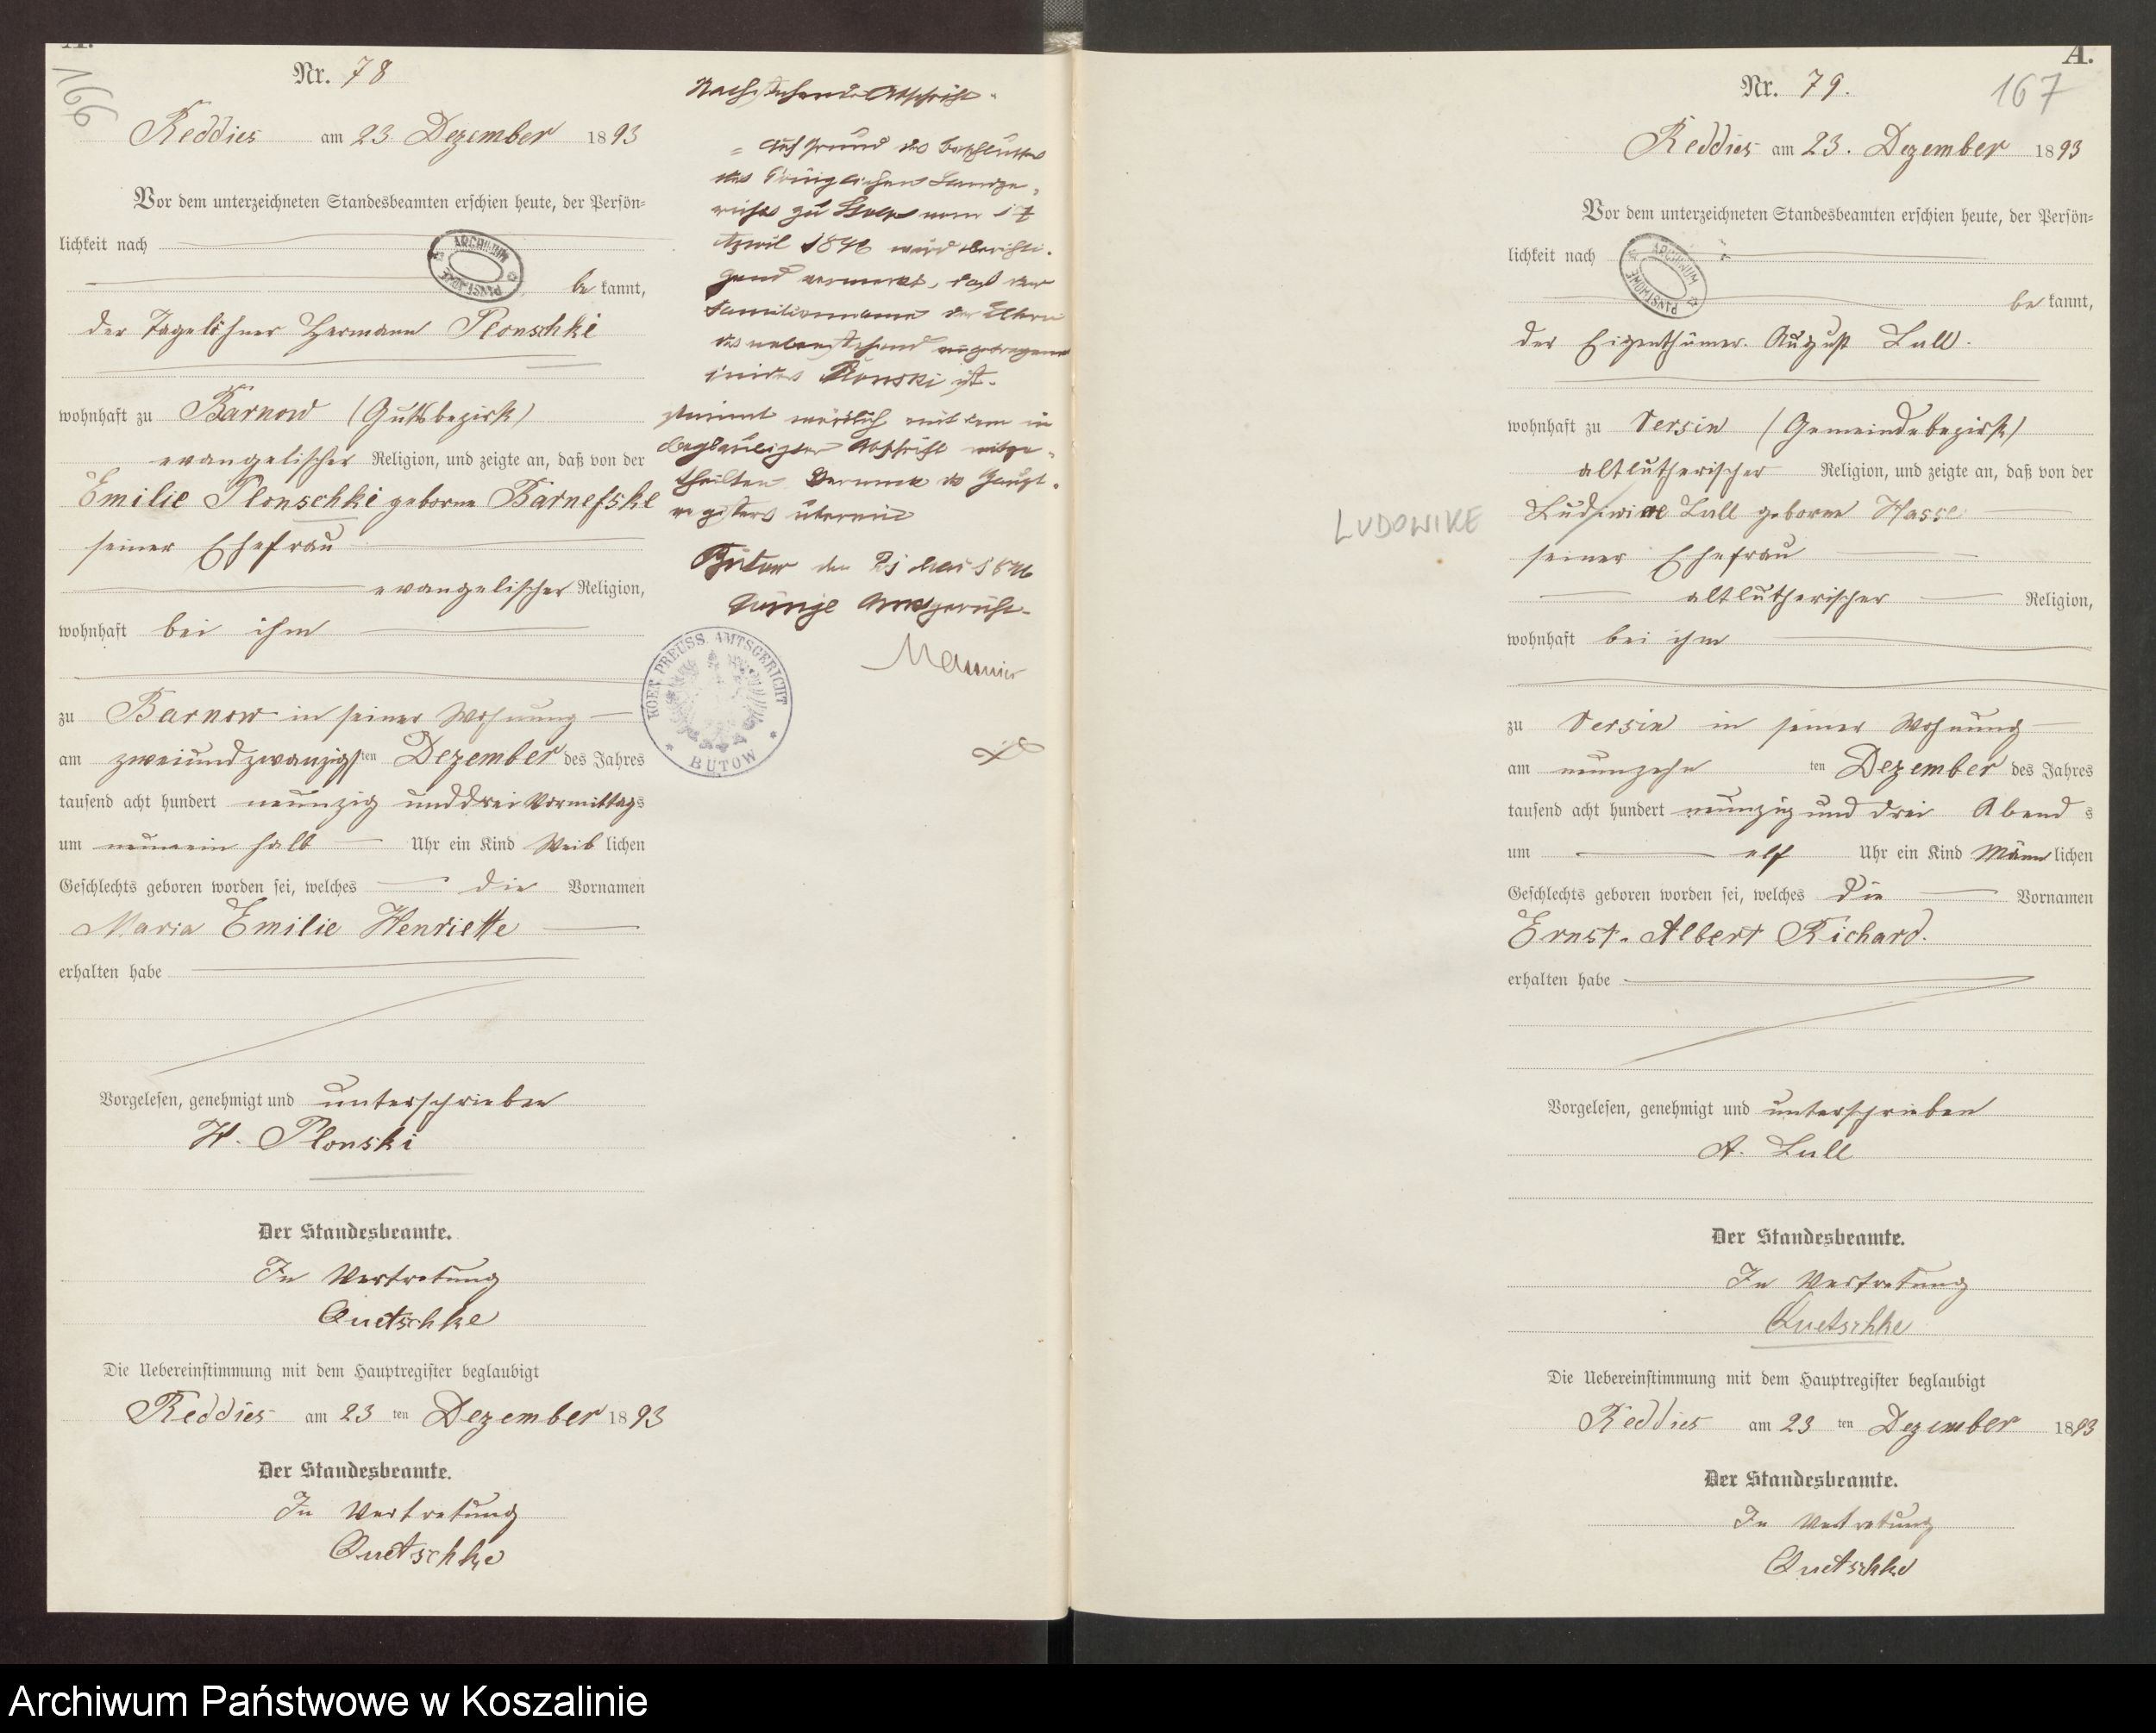 A.
166
Nr. 78
Reddies am 23. Dezember 1893
Vor dem unterzeichneten Standesbeamten erschien heute, der Persön=
lichkeit nach
be kannt,
der Tagelöhner Hermann Plonschki
wohnhaft zu Barnow (Gutsbezirk)
evangelischer Religion, und zeigte an, daß von der
Emilie Plonschki geborne Barnefske
seiner Ehefrau
evangelischer Religion,
wohnhaft bei ihm
zu Barnow in seiner Wohnung
am zweiundzwanzigsten Dezember des Jahres
tausend acht hundert neunzig und drei Vormittags
um neunein halb Uhr ein Kind Weib lichen
Geschlechts geboren worden sei, welches die Vornamen
Maria Emilie Henriette
erhalten habe
Vorgelesen, genehmigt und unterschrieben
H. Plonski
Der Standesbeamte.
In Vertretung
Quetschke
Die Uebereinstimmung mit dem Hauptregister beglaubigt
Reddies am 23 ten Dezember 1893
Der Standesbeamte.
In Vertretung
Quetschke
Nachstehende Abschrift.
= Auf Grund des Beschlusses
des Königlichen Landge=
richts zu Stolp vom 17
April 1896 wird berichti=
gend vermerkt, daß der
Familienname der Eltern
des nebenstehend eingetragenen
Kindes Plonski ist.
stimmt wörtlich mit dem in
beglaubigter Abschrift mitge=
theilten Vermerk des Haupt=
registers überein
Bütow den 21 Mai 1896
Königl Amtsgericht.
KOEN. PREUSS. AMTSGERICHT
* BÜTOW *
ARCHIWUM PAŃSTWOWE
A.
167
Nr. 79.
Reddies am 23. Dezember 1893
Vor dem unterzeichneten Standesbeamten erschien heute, der Persön=
lichkeit nach
ARCHIWUM PAŃSTWOWE
be kannt,
der Eigenthümer August Lall.
wohnhaft zu Versin (Gemeindebezirk)
altlutherischer Religion, und zeigte an, daß von der
LUDOWIKE
Ludwine Lall geborne Hasse
seiner Ehefrau
altlutherischer Religion,
wohnhaft bei ihm
zu Versin in seiner Wohnung
am neunzehn ten Dezember des Jahres
tausend acht hundert neunzig und drei Abend s
um elf Uhr ein Kind Männ lichen
Geschlechts geboren worden sei, welches die Vornamen
Ernst Albert Richard.
erhalten habe
Vorgelesen, genehmigt und unterschrieben
A. Lall
Der Standesbeamte.
In Vertretung
Quetschke
Die Uebereinstimmung mit dem Hauptregister beglaubigt
Reddies am 23 ten Dezember 1893
Der Standesbeamte.
In Vertretung
Quetschke
Archiwum Państwowe w Koszalinie